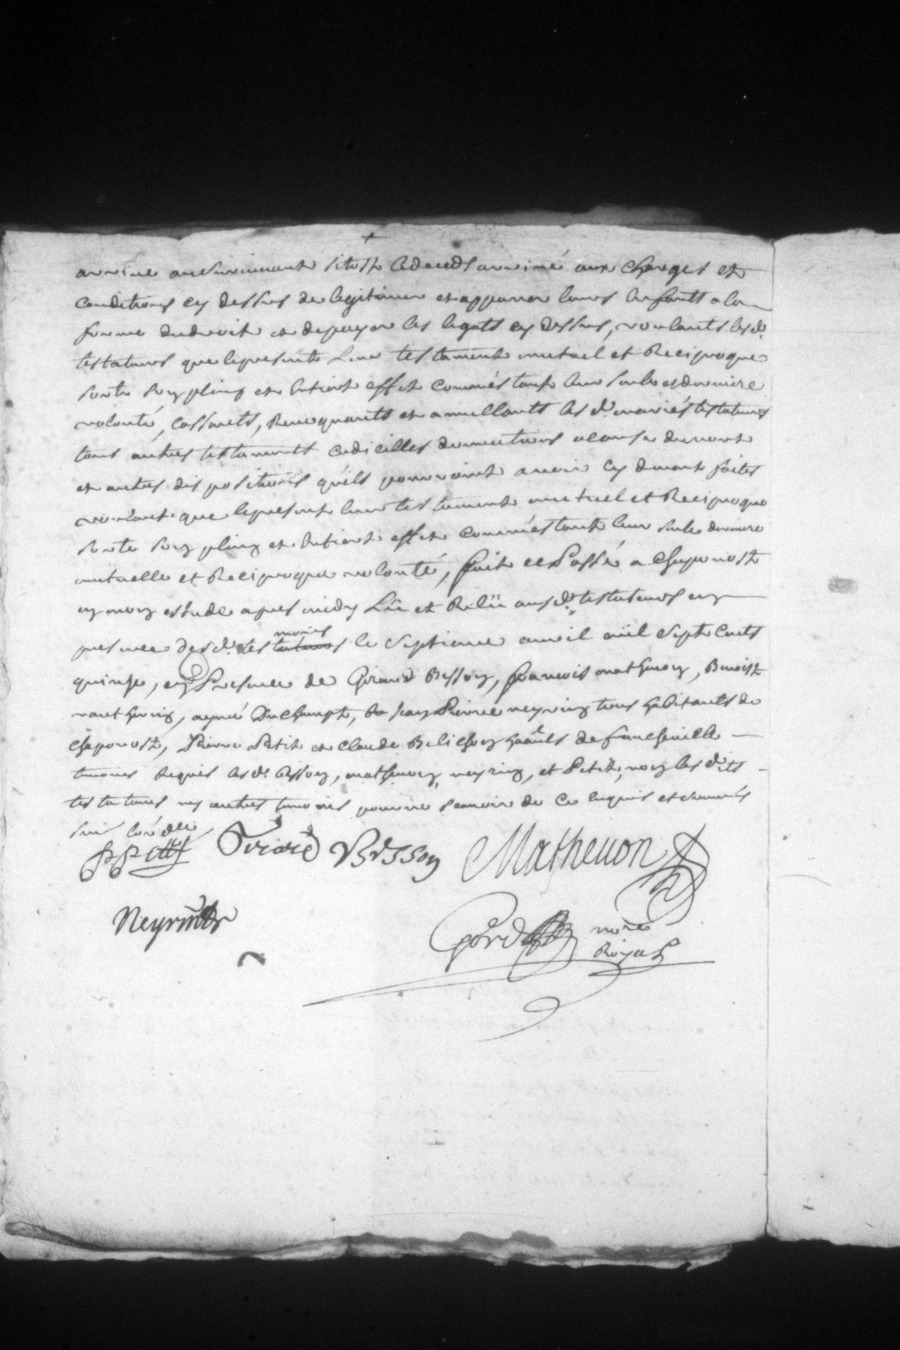 arrivé au survivant sitost le deceds arrivé aux charges et
conditions cy dessus de legitimer et appaner leurs enfants a la
forme du droit et de payer les legats cy dessus, voulants les d.
testateurs que le present leur testament mutuel et reciproque
sorte son plein et entier effet comme estant leur seule et derniere
volonté, cassants, revoquants et annullants les d. mariés testateurs
tous autres testaments codicilles donnations a cause de mort
et autres dispositions qu'ils pourroient avoir cy devant faites
voulant que le present leur testament mutuel et reciproque
sorte son plein et entier effet comme estant leur seule derniere
mutuelle et reciproque volonté, fait et passé a Chaponost
en mon estude apres midy Lû et Relû aux d. testateurs en
presence des d. tesmoins le septieme avril mil sept cents
quinze, en presence de Girard Bisson, françois mathevon, Benoist
aymé Duchampt, Jean Pierre neyrin tous habitants de
Chaponost, Pierre Petit et Claude habitants de francheville
temoins requis les d. Bisson, mathevon, neyrin, et Petit, non les dits
testateurs ny autres temoins pour ne scavoir de ce enquis et sommés
P Petit Girard Bisson Mathevon
Neyrin
nore
Royal